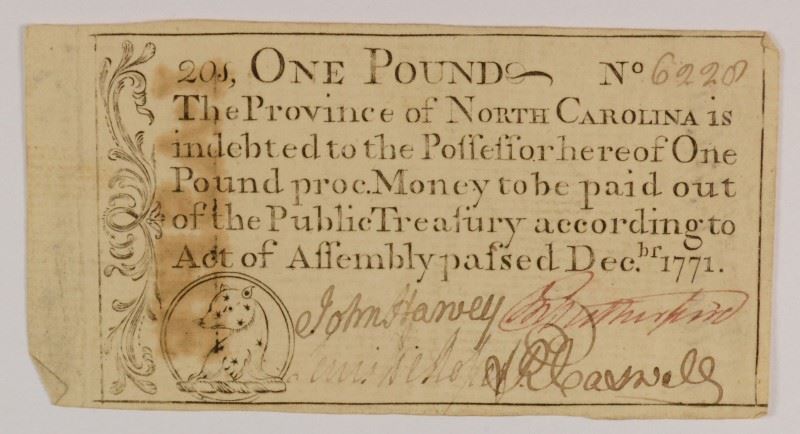 20s, ONE POUND No 6228
The Province of NORTH CAROLINA is
indebted to the Poſſeſſor hereof One
Pound proc. Money to be paid out
of the Public Treaſury according to
Act of Aſſembly paſsed Dec.br 1771.
John Harvey Rutherfurd
Lewis De Roſſet R Caswell